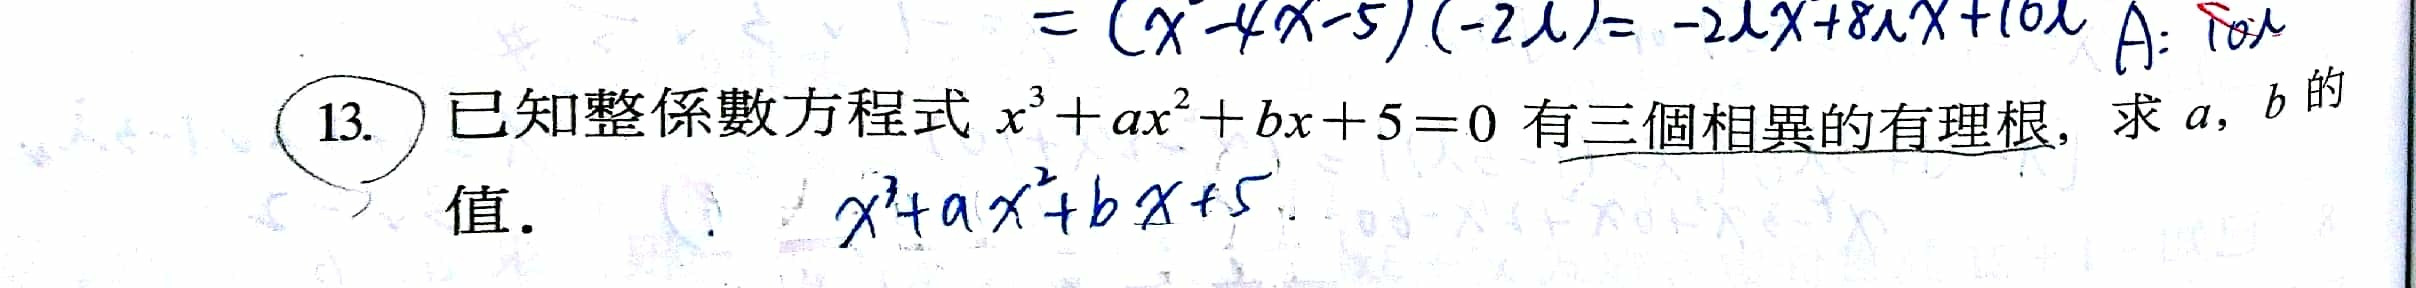 = (x²-4x-5)(-2i)= -2ix+8ix+10i A: 10i
13. 已知整係數方程式 x³+ax²+bx+5=0 有三個相異的有理根, 求 a, b 的
值.
x³+ax²+bx+5